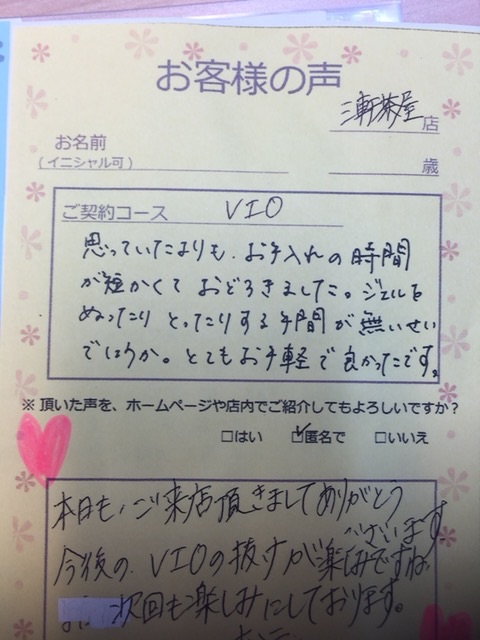 お客様の声
三軒茶屋 店
お名前
(イニシャル可) 歳
ご契約コース VIO
思っていたよりも、お手入れの時間
が短かくておどろきました。ジェルを
ぬったりとったりする手間が無いせい
でしょうか。とてもお手軽で良かったです。
※頂いた声を、ホームページや店内でご紹介してもよろしいですか?
□はい ☑匿名で □いいえ
本日も、ご来店頂きましてありがとう
ございます
今後の、VIOの抜け方が楽しみですね
次回も楽しみにしております。